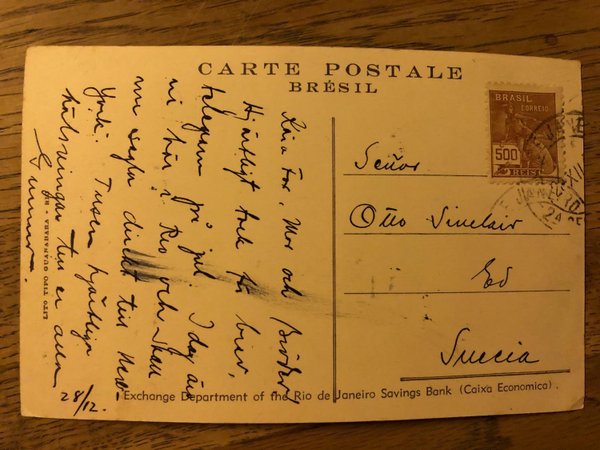 CARTE POSTALE
BRÉSIL
Kära Far, Mor och
Hjärtligt tack för brev,
telegram på jul. I dag äro
vi här i Rio och skall
nu segla direkt till New
York. Tusen hjärtliga
hälsningar till er alla
Gunnar.
28/12.
BRASIL
CORREIO
500
REIS
Señor
Otto Sinclair
Ed
Suecia
LITO TIPO GUANABARA - RIO
Exchange Department of the Rio de Janeiro Savings Bank (Caixa Economica).